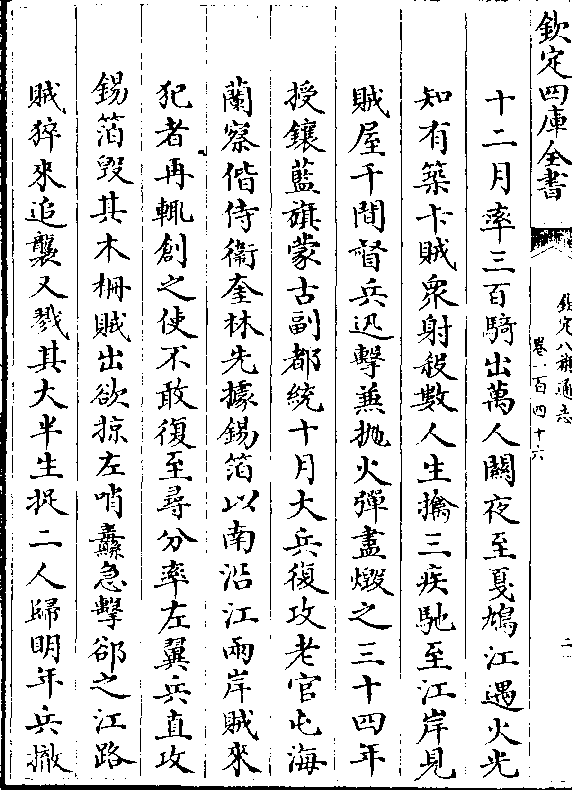 欽定四庫全書
欽定八旗通志
卷一百四十六
二
十二月率三百騎出萬人關夜至戛鳩江遇火光
知有築卡賊衆射殺數人生擒三疾馳至江岸見
賊屋千間督兵迅擊兼拋火彈盡燬之三十四年
授鑲藍旗蒙古副都統十月大兵復攻老官屯海
蘭察偕侍衛奎林先據錫箔以南沿江兩岸賊來
犯者再輒創之使不敢復至尋分率左翼兵直攻
錫箔毀其木柵賊出欲掠左哨纛急擊郤之江路
賊猝來追襲又戮其大半生捉二人歸明年兵撤